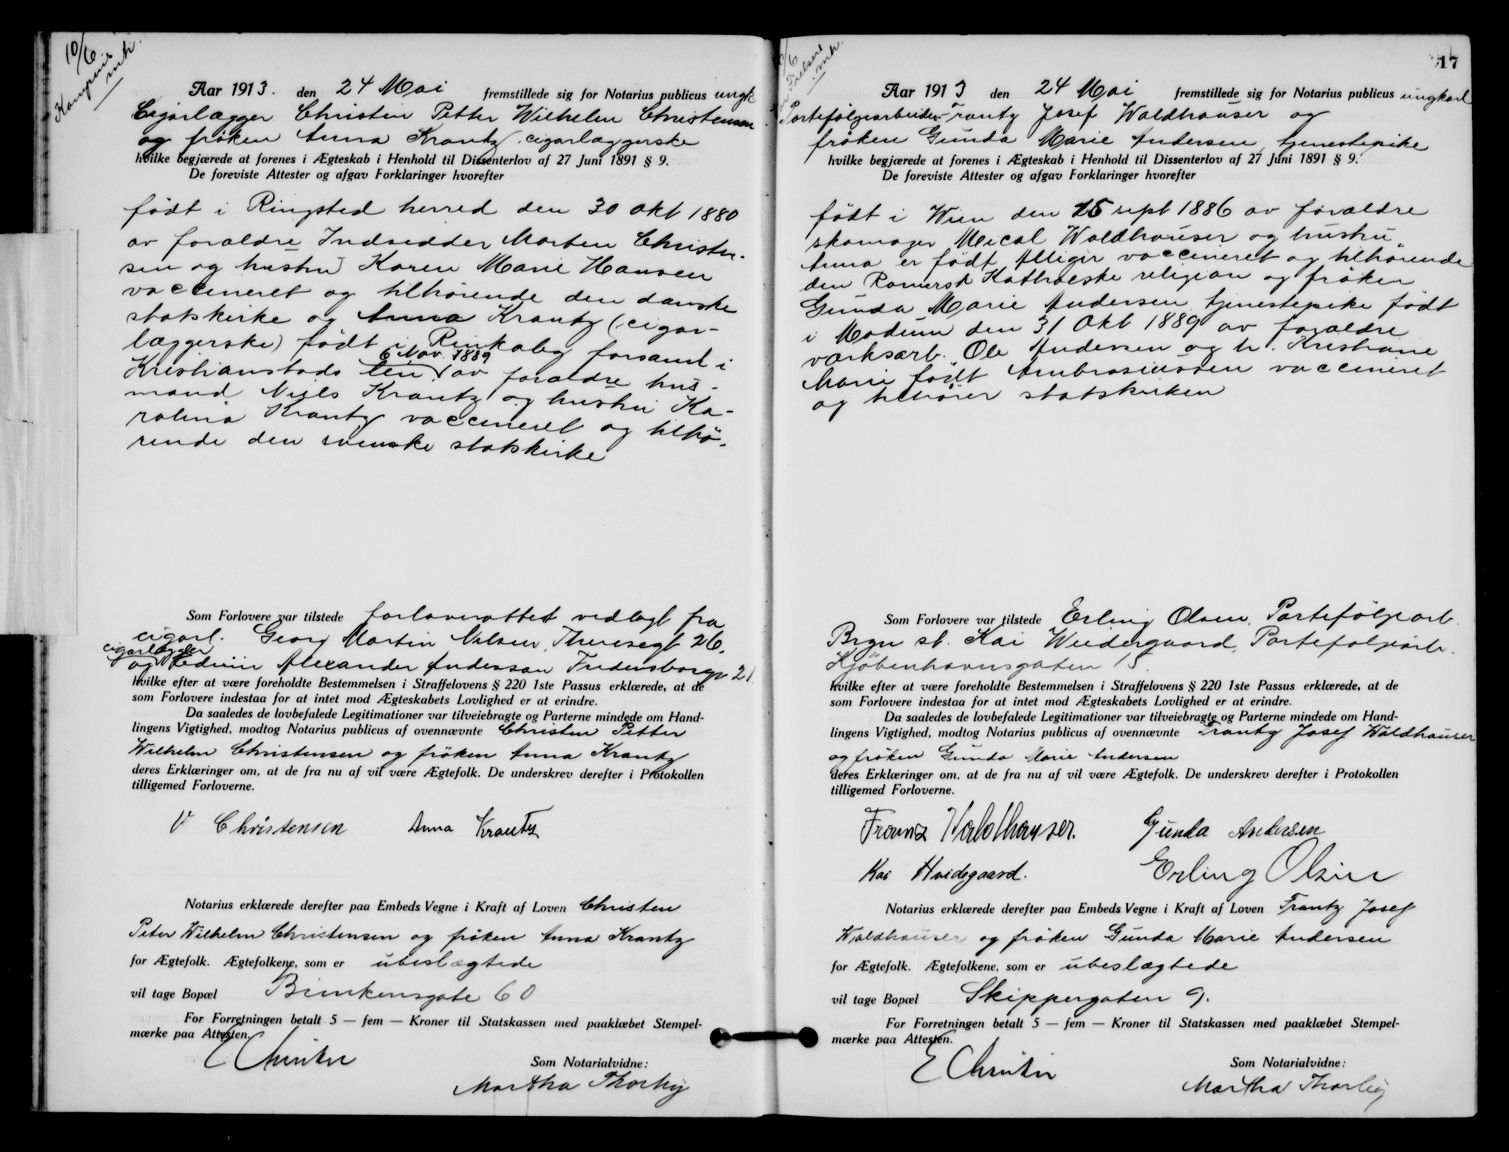 10/6
mh.
Aar 1913. den 24 Mai fremstillede sig for Notarius publicus ungk
Cigarlægger Christen Petter Wilhelm Christensen
og frøken Anna Krantz, cigarlæggerske
hvilke begjærede at forenes i Ægteskab i Henhold til Dissenterlov af 27 Juni 1891 § 9.
De foreviste Attester og afgav Forklaringer hvorefter
født i Ringsted herred den 30 okt 1880
av foraldre Indsidder Morten Christen-
sen og hustru Karen Marie Hansen
vaccineret og tilhørende den danske
statskirke og Anna Krantz (cigar-
læggerske) født i Rinkaby forsaml i
6 Nov. 1889
Kristianstads len av foraldre hus-
mand Niels Krantz og hustru Ka-
rolina Krantz vaccineret og tilhø-
rende den svenske statskirke
Som Forlovere var tilstede forloverattest vedlagt fra
cigarl. Georg Martin Nilsen, Theresegt 26.
cigarlægger
og Edvin Alexander Andersson Fredensborgv 21
hvilke efter at være foreholdte Bestemmelsen i Straffelovens § 220 1ste Passus erklærede, at de
som Forlovere indestaa for at intet mod Ægteskabets Lovlighed er at erindre.
Da saaledes de lovbefalede Legitimationer var tilveiebragte og Parterne mindede om Hand-
lingens Vigtighed, modtog Notarius publicus af ovennævnte Christen Petter
Wilhelm Christensen og frøken Anna Krantz
deres Erklæringer om, at de fra nu af vil være Ægtefolk. De underskrev derefter i Protokollen
tilligemed Forloverne.
V Christensen Anna Krantz
Notarius erklærede derefter paa Embeds Vegne i Kraft af Loven Christen
Peter Wilhelm Christensen og frøken Anna Krantz
for Ægtefolk. Ægtefolkene, som er ubeslægtede
vil tage Bopæl Birnkensgate 60
For Forretningen betalt 5 — fem — Kroner til Statskassen med paaklæbet Stempel-
mærke paa Attesten.
E Christie
Som Notarialvidne:
Martha Thorby
10/6
mh.
17
Aar 1913 den 24 Mai fremstillede sig for Notarius publicus ungkarl
Porteføljearbeider Frantz Josef Waldhauser og
frøken Gunda Marie Andersen, tjenestepike
hvilke begjærede at forenes i Ægteskab i Henhold til Dissenterlov af 27 Juni 1891 § 9.
De foreviste Attester og afgav Forklaringer hvorefter
født i Wien den 15 sept 1886 av foraldre
skomager Mical Waldhauser og hustru
Anna er født vaccineret og tilhørende
den Romersk Katholske religion og frøken
Gunda Marie Andersen tjenestepike født
i Modum den 31 Okt 1889 av foraldre
værksarb. Ole Andersen og h. Kristiane
Marie født Ambrosiusden vaccineret
og tilhører statskirken
Som Forlovere var tilstede Erling Olsen, Portefølgearb.
Brgn st. Kai Weedergaard, Portefølgearb.
Kjøbenhavnsgaten 15.
hvilke efter at være foreholdte Bestemmelsen i Straffelovens § 220 1ste Passus erklærede, at de
som Forlovere indestaa for at intet mod Ægteskabets Lovlighed er at erindre.
Da saaledes de lovbefalede Legitimationer var tilveiebragte og Parterne mindede om Hand-
lingens Vigtighed, modtog Notarius publicus af ovennævnte Frantz Josef Waldhauser
og frøken Gunda Marie Andersen
deres Erklæringer om, at de fra nu af vil være Ægtefolk. De underskrev derefter i Protokollen
tilligemed Forloverne.
Franz Waldhauser. Gunda Andersen
Kai Hvidegaard. Erling Olsen
Notarius erklærede derefter paa Embeds Vegne i Kraft af Loven Frantz Josef
Waldhauser og frøken Gunda Marie Andersen
for Ægtefolk. Ægtefolkene, som er ubeslægtede
vil tage Bopæl Skippergaten 9.
For Forretningen betalt 5 — fem — Kroner til Statskassen med paaklæbet Stempel-
mærke paa Attesten.
E Christie
Som Notarialvidne:
Martha Thorby